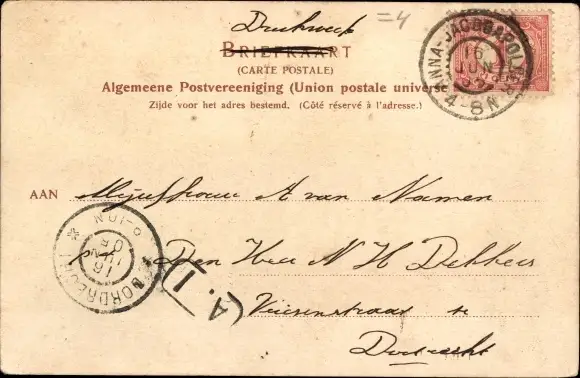 Drukwerk
=4
BRIEFKAART
(CARTE POSTALE)
Algemeene Postvereeniging (Union postale universe
Zijde voor het adres bestemd. (Côté réservé à l'adresse.)
ANNA-JACOBAPOLDER
16 JUN
4-8N
AAN Mejufvrouw A van Namen
Den Heer N H Dekkers
(A. 1)
te
Dordrecht
DORDRECHT
16 JUN 05